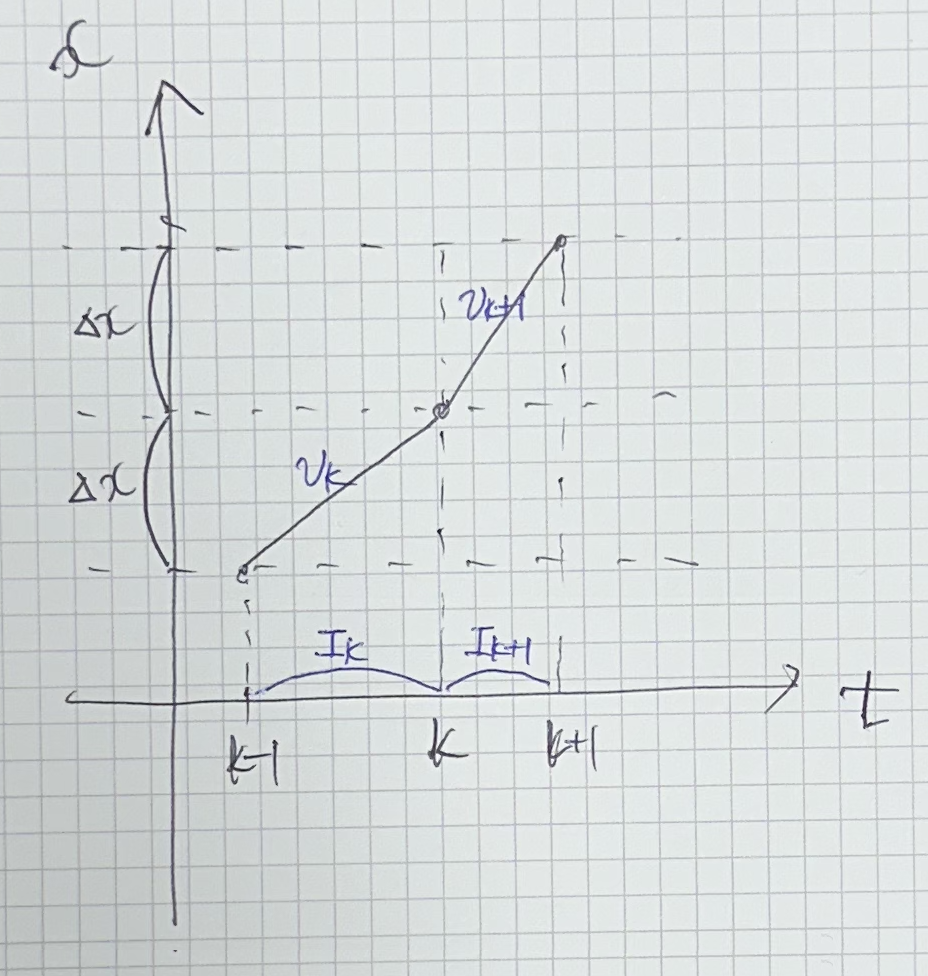 x
Δx
v_{k+1}
Δx
v_k
I_k
I_{k+1}
t
k-1
k
k+1